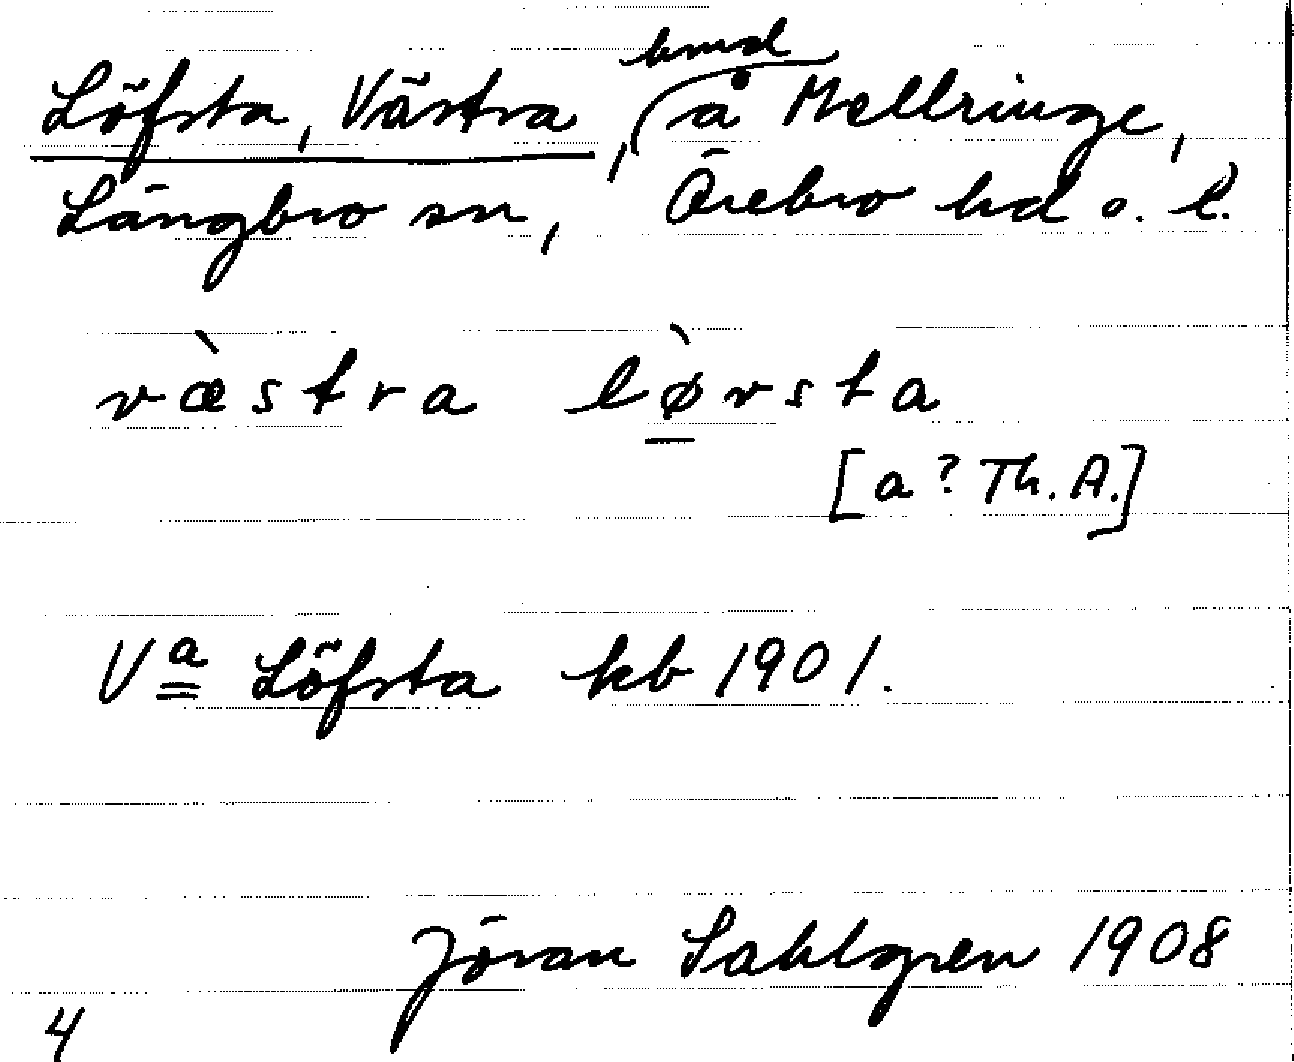 Löfsta, Västra, bmd å Mellringe,
Längbro sn, Örebro hd o. l.
væ̀stra lø̀rsta
[a? Th. A.]
Vª Löfsta kb 1901.
Jöran Sahlgren 1908
4